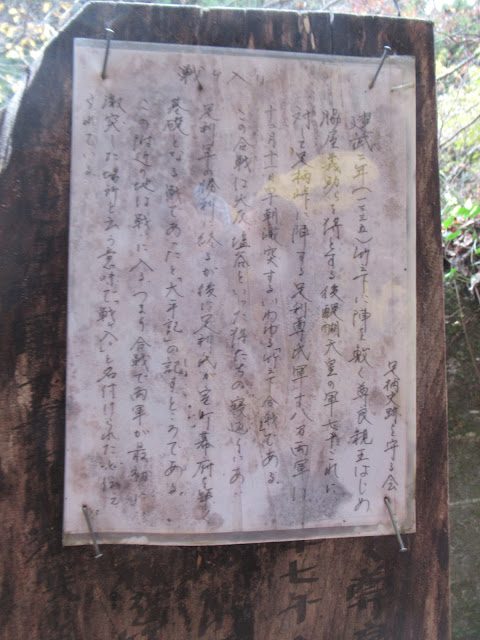 戦ヶ入り
足柄史跡を守る会
建武二年(一三三五)竹之下に陣を敷く尊良親王はじめ
脇屋義助を将とする後醍醐天皇の軍七万これに
対して足柄峠に陣する足利尊氏軍十八万両軍は
十二月十一日早朝激突するいわゆる竹之下合戦である。
この合戦は大友、塩谷といった将たちの寝返りにあい
足利軍の勝利に終るが後に足利氏が室町幕府を築く
基礎となる戦であったと「太平記」の記すところである。
この附近の地は戦に入るつまり合戦で両軍が最初に
激突した場所と云う意味で「戦ヶ入り」と名付けられたと伝え
られている